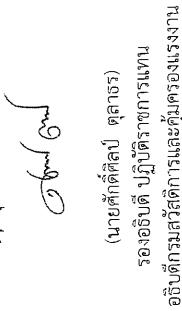 (นายศักดิ์ศิลป์ ตุลาธร)
รองอธิบดี ปฏิบัติราชการแทน
อธิบดีกรมสวัสดิการและคุ้มครองแรงงาน